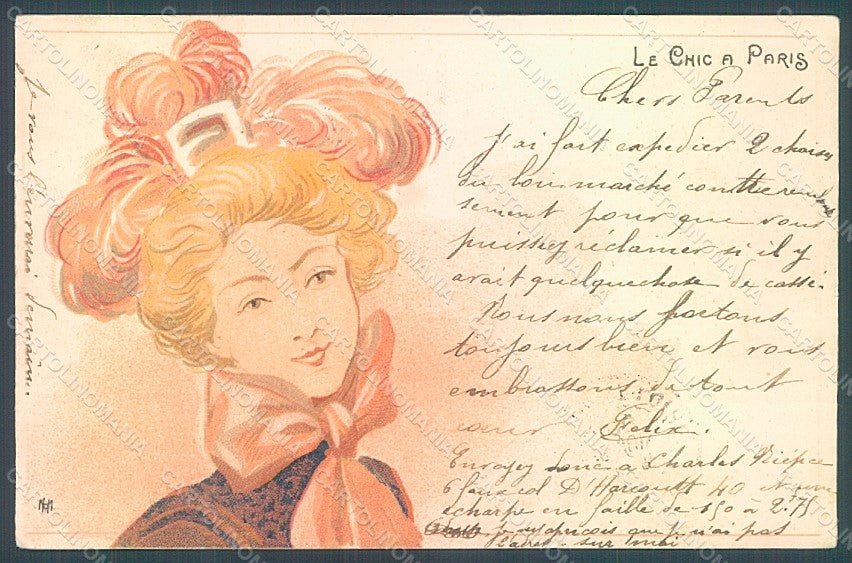 LE CHIC A PARIS
Chers Parents
J'ai fait expedier 2 chaises
du bon marché contre rembour
sement pour que vous
puissiez réclamer si il y
avait quelque chose de cassé.
Nous nous portons
toujours bien et vous
embrassons de tout
coeur Felix.
Envoyez donc a Charles
6 faux col D'Harcourt 40 et une
écharpe en faille de 1.50 à 2.75
je m'aperçois que je n'ai pas
sur moi
Je vous demain.
HM
CARTOLINOMANIA